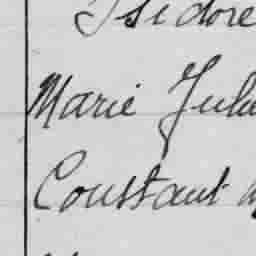 Isidore
Marie Jule
Constant